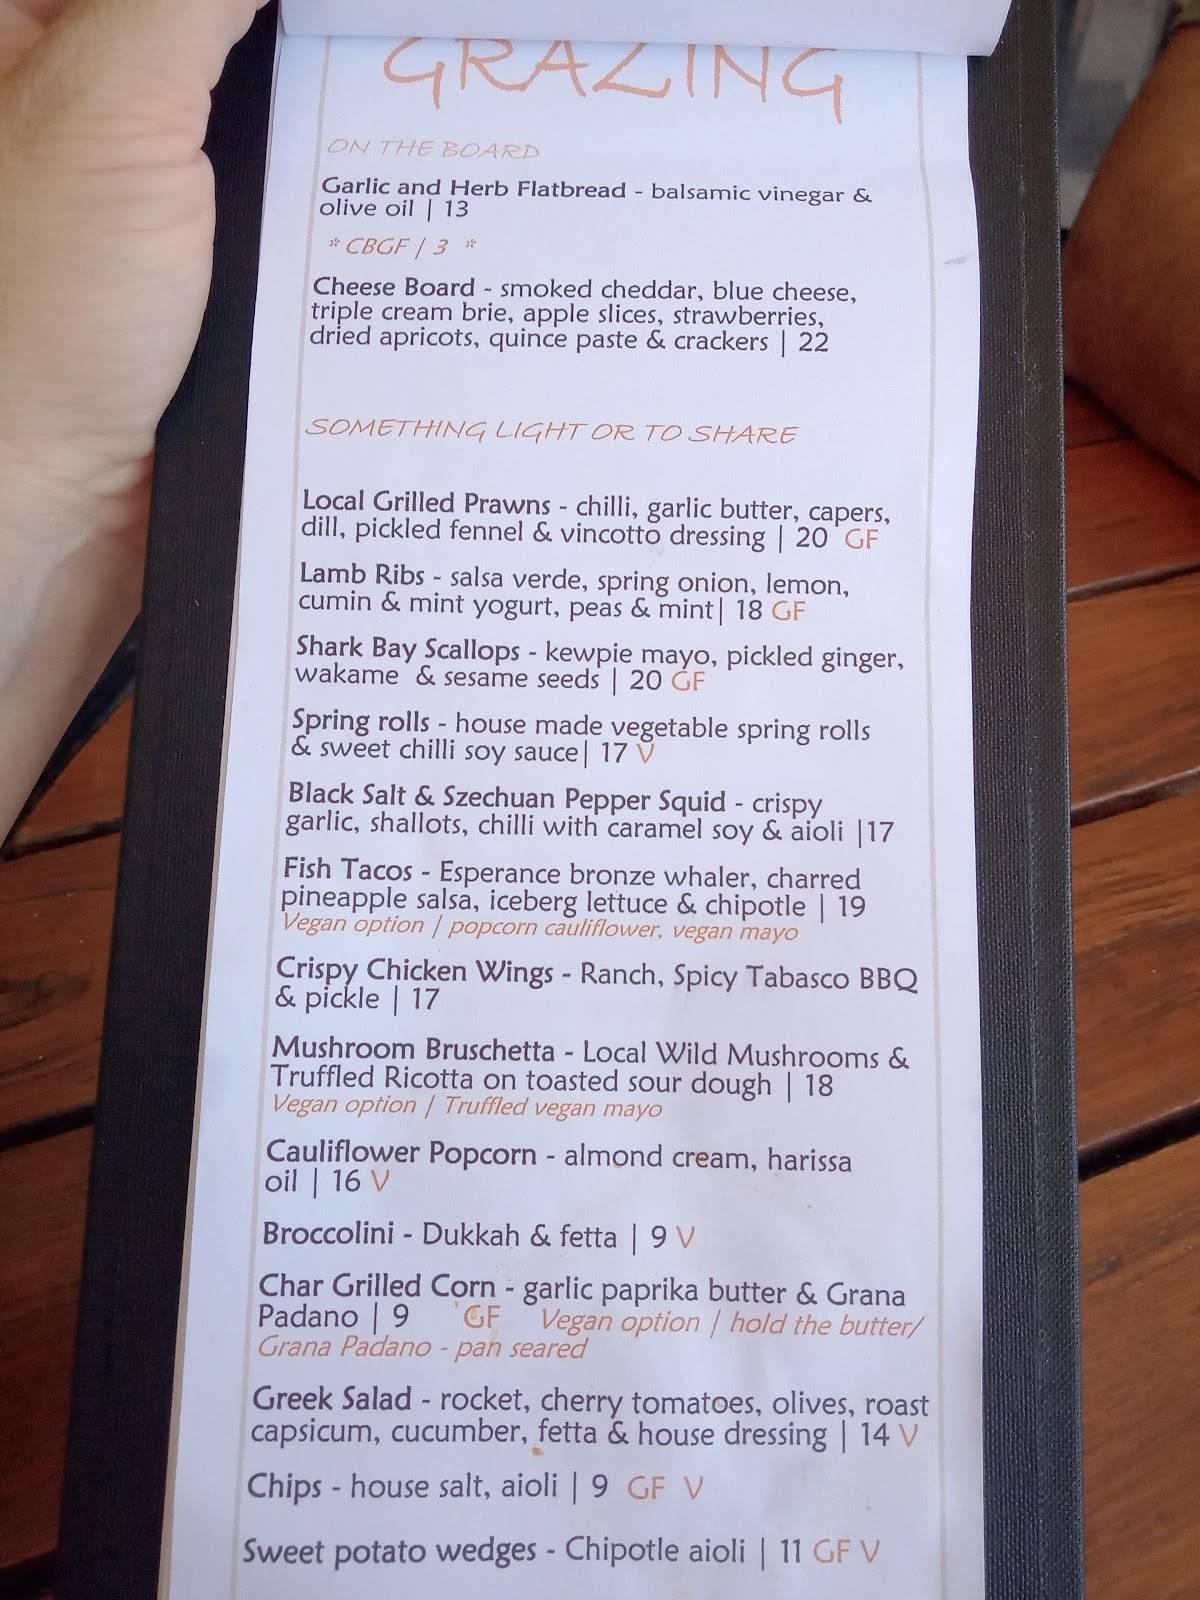 GRAZING
ON THE BOARD
Garlic and Herb Flatbread - balsamic vinegar &
olive oil | 13
* CBGF / 3 *
Cheese Board - smoked cheddar, blue cheese,
triple cream brie, apple slices, strawberries,
dried apricots, quince paste & crackers | 22
SOMETHING LIGHT OR TO SHARE
Local Grilled Prawns - chilli, garlic butter, capers,
dill, pickled fennel & vincotto dressing | 20 GF
Lamb Ribs - salsa verde, spring onion, lemon,
cumin & mint yogurt, peas & mint| 18 GF
Shark Bay Scallops - kewpie mayo, pickled ginger,
wakame & sesame seeds | 20 GF
Spring rolls - house made vegetable spring rolls
& sweet chilli soy sauce| 17 V
Black Salt & Szechuan Pepper Squid - crispy
garlic, shallots, chilli with caramel soy & aioli |17
Fish Tacos - Esperance bronze whaler, charred
pineapple salsa, iceberg lettuce & chipotle | 19
Vegan option / popcorn cauliflower, vegan mayo
Crispy Chicken Wings - Ranch, Spicy Tabasco BBQ
& pickle | 17
Mushroom Bruschetta - Local Wild Mushrooms &
Truffled Ricotta on toasted sour dough | 18
Vegan option / Truffled vegan mayo
Cauliflower Popcorn - almond cream, harissa
oil | 16 V
Broccolini - Dukkah & fetta | 9 V
Char Grilled Corn - garlic paprika butter & Grana
Padano | 9 GF Vegan option / hold the butter/
Grana Padano - pan seared
Greek Salad - rocket, cherry tomatoes, olives, roast
capsicum, cucumber, fetta & house dressing | 14 V
Chips - house salt, aioli | 9 GF V
Sweet potato wedges - Chipotle aioli | 11 GF V